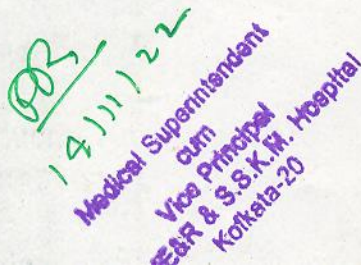 14/11/22
Medical Superintendent
cum
Vice Principal
E&R & S.S.K.M. Hospital
Kolkata-20